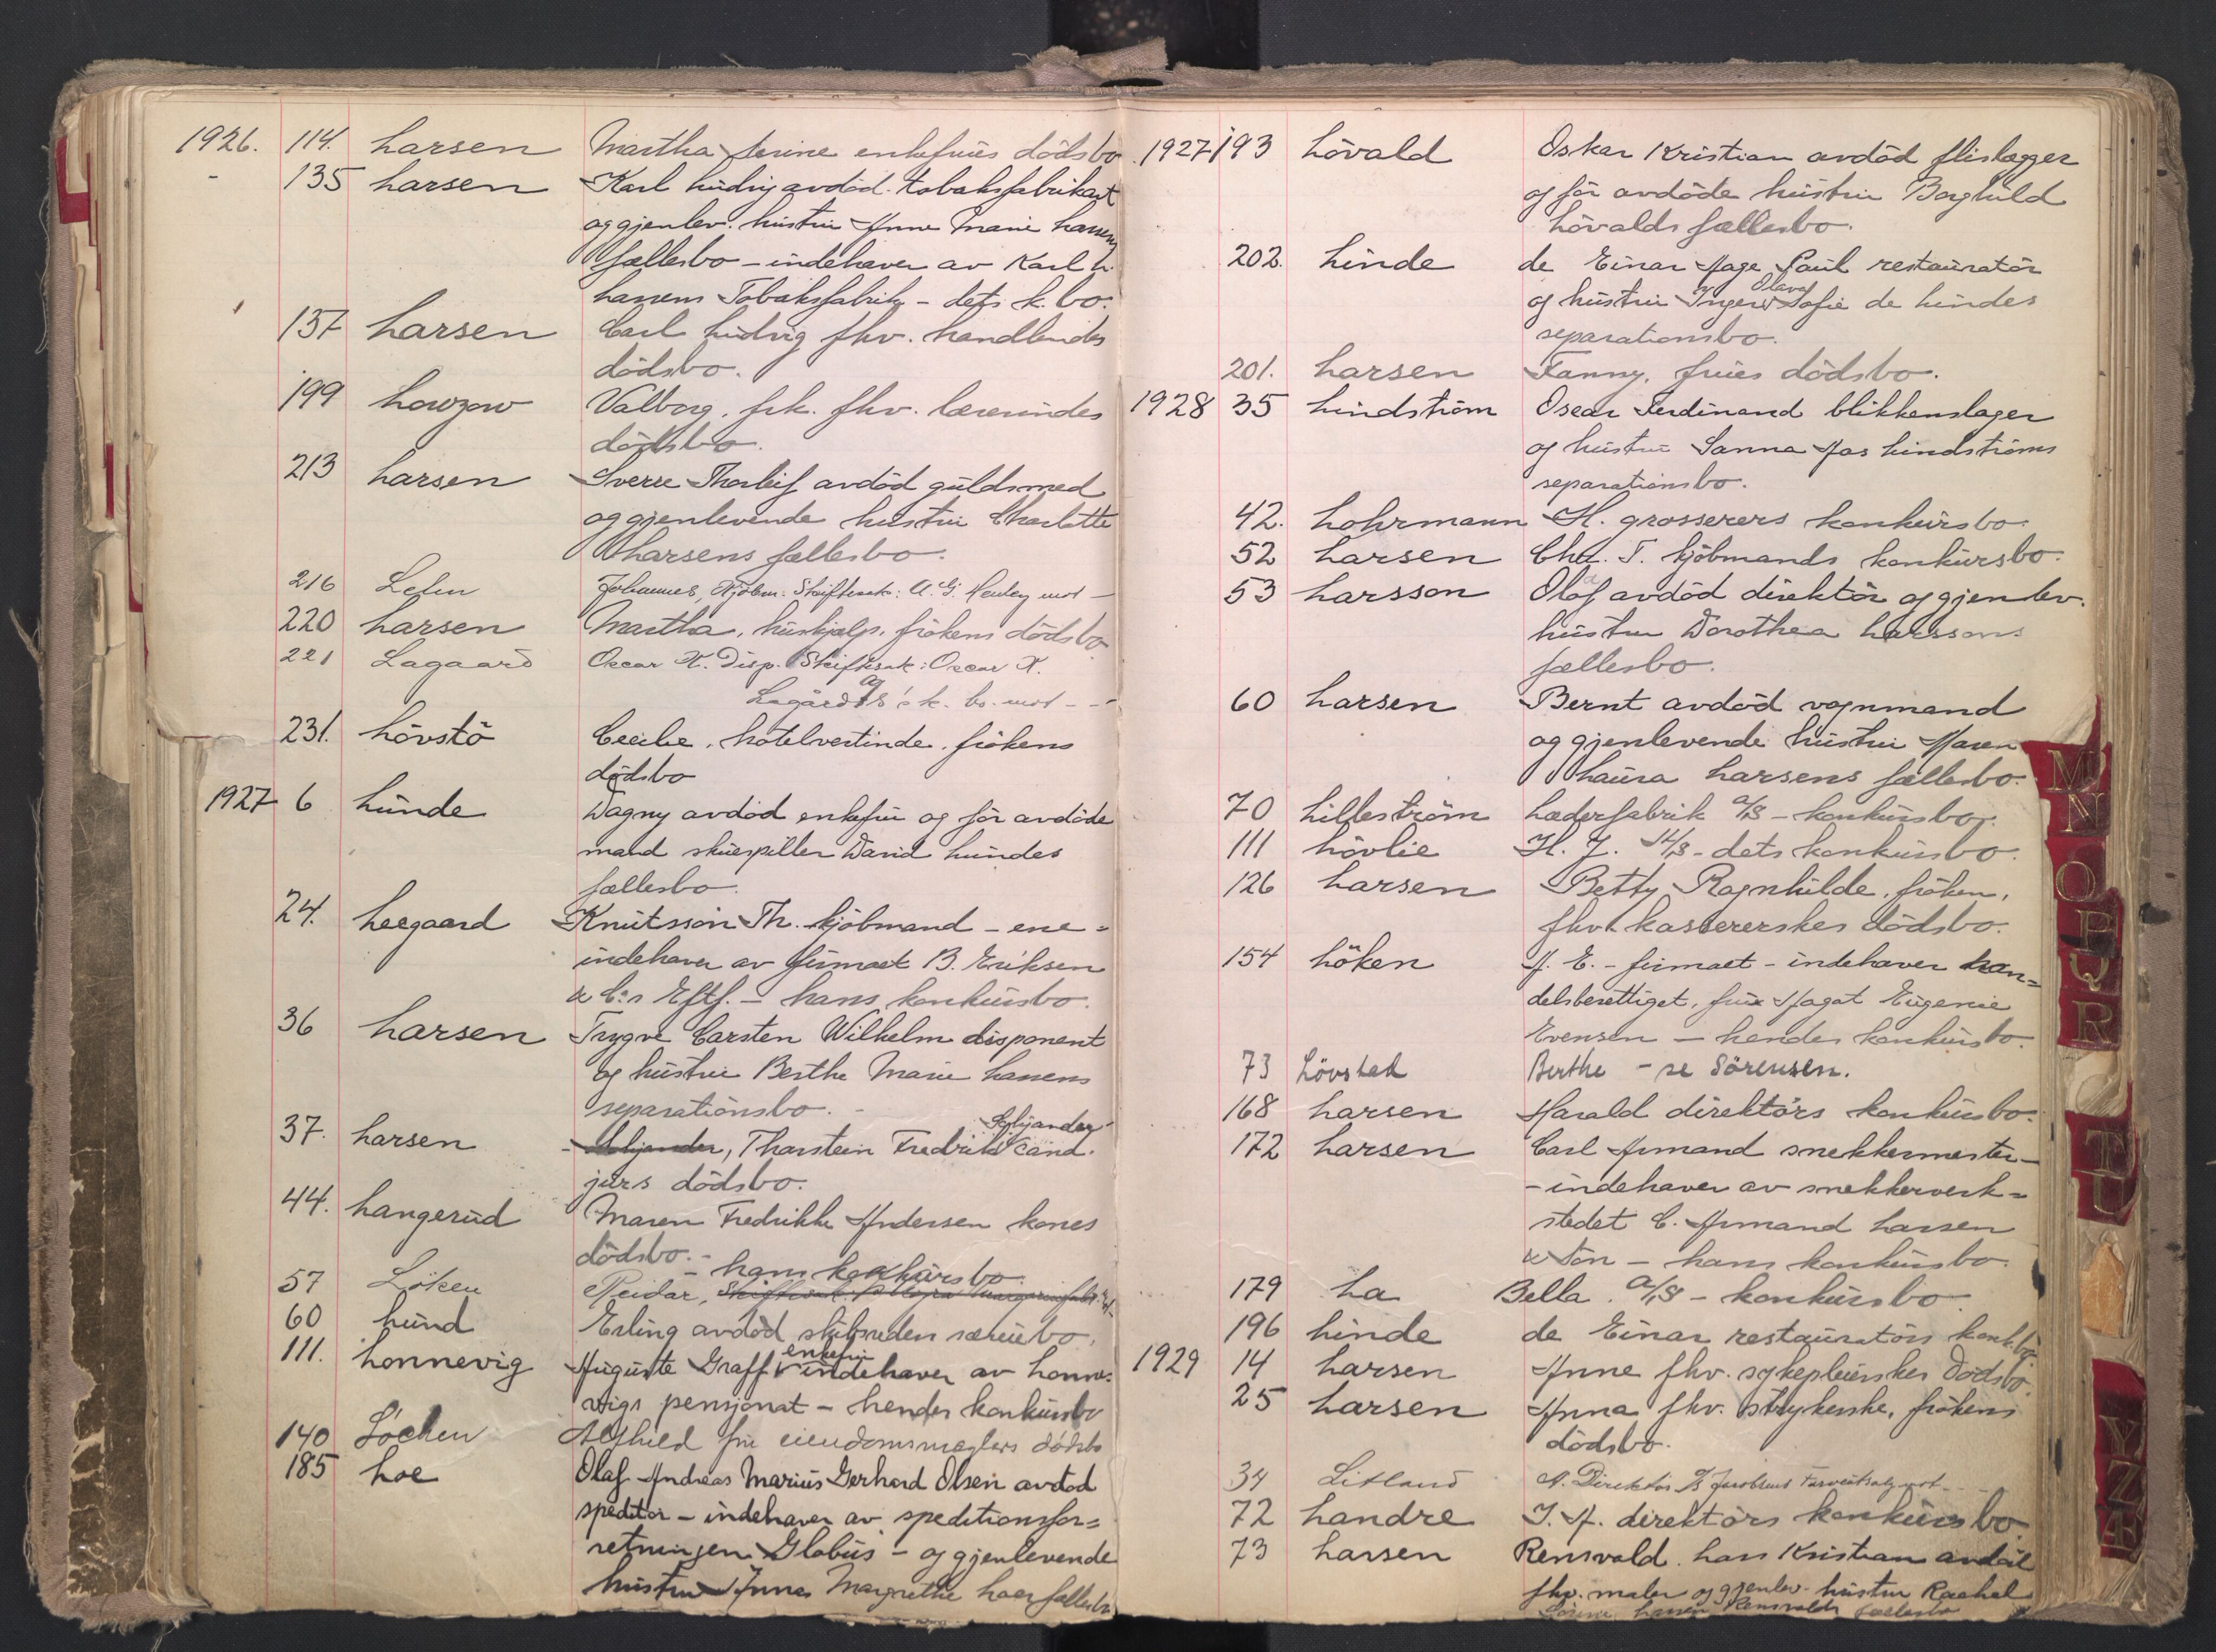 1926. 114. Larsen Martha Serine enkefrues dödsbo
- 135 Larsen Karl Ludvig avdöd tobaksfabrikant
og gjenlev. hustru Anne Marie Larsens
fællesbo – indehaver av Karl L.
Larsens Tobaksfabrik – dets k. bo.
137 Larsen Carl Ludvig fhv. handlendes
dödsbo.
199 Lowzow Valborg, frk. fhv. lærerindes
dödsbo.
213 Larsen Sverre Thorleif avdöd guldsmed
og gjenlevende hustru Charlotte
Larsens fællesbo.
216 Lehn Johannes, Kjöbm. Skiftesak: A. G. mot –
220 Larsen Martha, hushjælp, frökens dödsbo
221 Lagaard Oscar H. Disp. Skiftesak: Oscar H.
Lagaard k. bo. mot - -
231. Lövstö Cecilie, hotelvertinde, frökens
dödsbo
1927 6 Lunde Dagny avdöd enkefru og för avdöde
mand skuespiller David Lundes
fællesbo.
24. Leegaard Knutsson Th. kjöbmand – ene=
indehaver av firmaet B. Eriksen
& Co.s Eftf. – hans konkursbo.
36 Larsen Trygve Carsten Wilhelm disponent
og hustru Berthe Marie Larsens
separationsbo. -
Schjander
37. Larsen Schjander, Tharstein Fredrik cand.
jurs dödsbo.
44. Langerud Maren Fredrikke Andersen kones
dödsbo. -
– hans konkursbo.
57 Löken Reidar, Skiftesak: Margarinfabr.
60 Lund Erling avdöd skibsreders særeiebo.
enkefru
111. Lonnevig Auguste Graff indehaver av Lonne-
vigs pensjonat – hendes konkursbo
140 Löchen Alfhild fru eiendomsmæglers dödsbo
185 Loe Olaf Andreas Marius Gerhard Olsen avdöd
speditör – indehaver av speditionsfor=
retningen Globus – og gjenlevende
hustru Anna Margrethe Loes fællesbo
1927 193 Lövald Oskar Kristian avdöd flislægger
og för avdöde hustru Borghild
Lövalds fællesbo.
202. Linde de Einar Aage Paul restauratör
Olava
og hustru Inger Sofie de Lindes
separationsbo.
201. Larsen Fanny, frues dödsbo.
1928 35 Lindström Oscar Ferdinand blikkenslager
og hustru Sanna Aas Lindströms
separationsbo.
42. Lohrmann H. grosserers konkursbo.
52 Larsen Chr. T. kjöbmands konkursbo.
53 Larsson Olof avdöd direktör og gjenlev.
hustru Dorothea Larssons
fællesbo.
60 Larsen Bernt avdöd vognmand
og gjenlevende hustru Maren
Laura Larsens fællesbo.
70 Lilleström Læderfabrik A/S – konkursbo.
111 Lövlie H. J. A/S – dets konkursbo.
126 Larsen Betty Ragnhilde, fröken,
fhv. kassererskes dödsbo.
154 Löken A. E. – firmaet – indehaver han=
delsberettiget, fru Agat Eugenie
Evensen – hendes konkursbo.
73 Lövstad Berthe – se Sörensen.
168 Larsen Harald direktörs konkursbo.
172 Larsen Carl Armand snekkermester –
– indehaver av snekkerverk=
stedet C. Armand Larsen
& Sön – hans konkursbo.
179 La Bella A/S – konkursbo.
196 Linde de Einar restauratörs konk.bo.
1929 14 Larsen Anne fhv. sykepleierskes dödsbo.
25 Larsen Anna fhv. strykerske, frökens
dödsbo.
34 Litland A. Direktör mot - -
72 Landre J. A. direktörs konkursbo
73 Larsen Rensvold, Lars Kristian avdöd
fhv. maler og gjenlev. hustru Rachel
Larsen Rensvolds fællesbo
M
N
O
P
Q
R
T
U
Y
Z
Æ